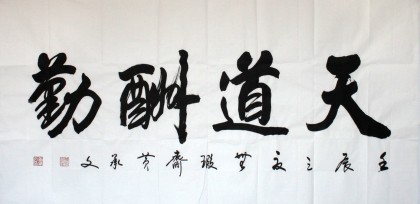 天道酬勤
壬辰之夏無瑕齋黄承文